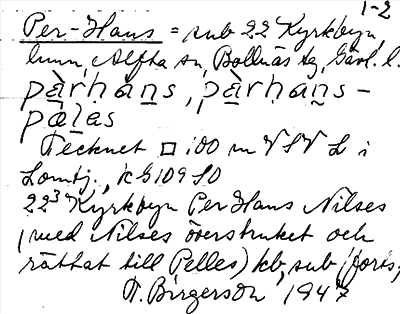 1-2
Per-Hans = sub 22 Kyrkbyn,
hmn, Alfta sn, Bollnäs tg, Gävl. l.
pàrhans, pàrhans-
pàlas
Tecknet □ 100 m VSV L i
Lomtj., kb 109 SO
22³ Kyrkbyn Per Hans Nilses
(med Nilses överstruket och
rättat till Pelles) kb, sub (forts,
T. Birgerson 1947